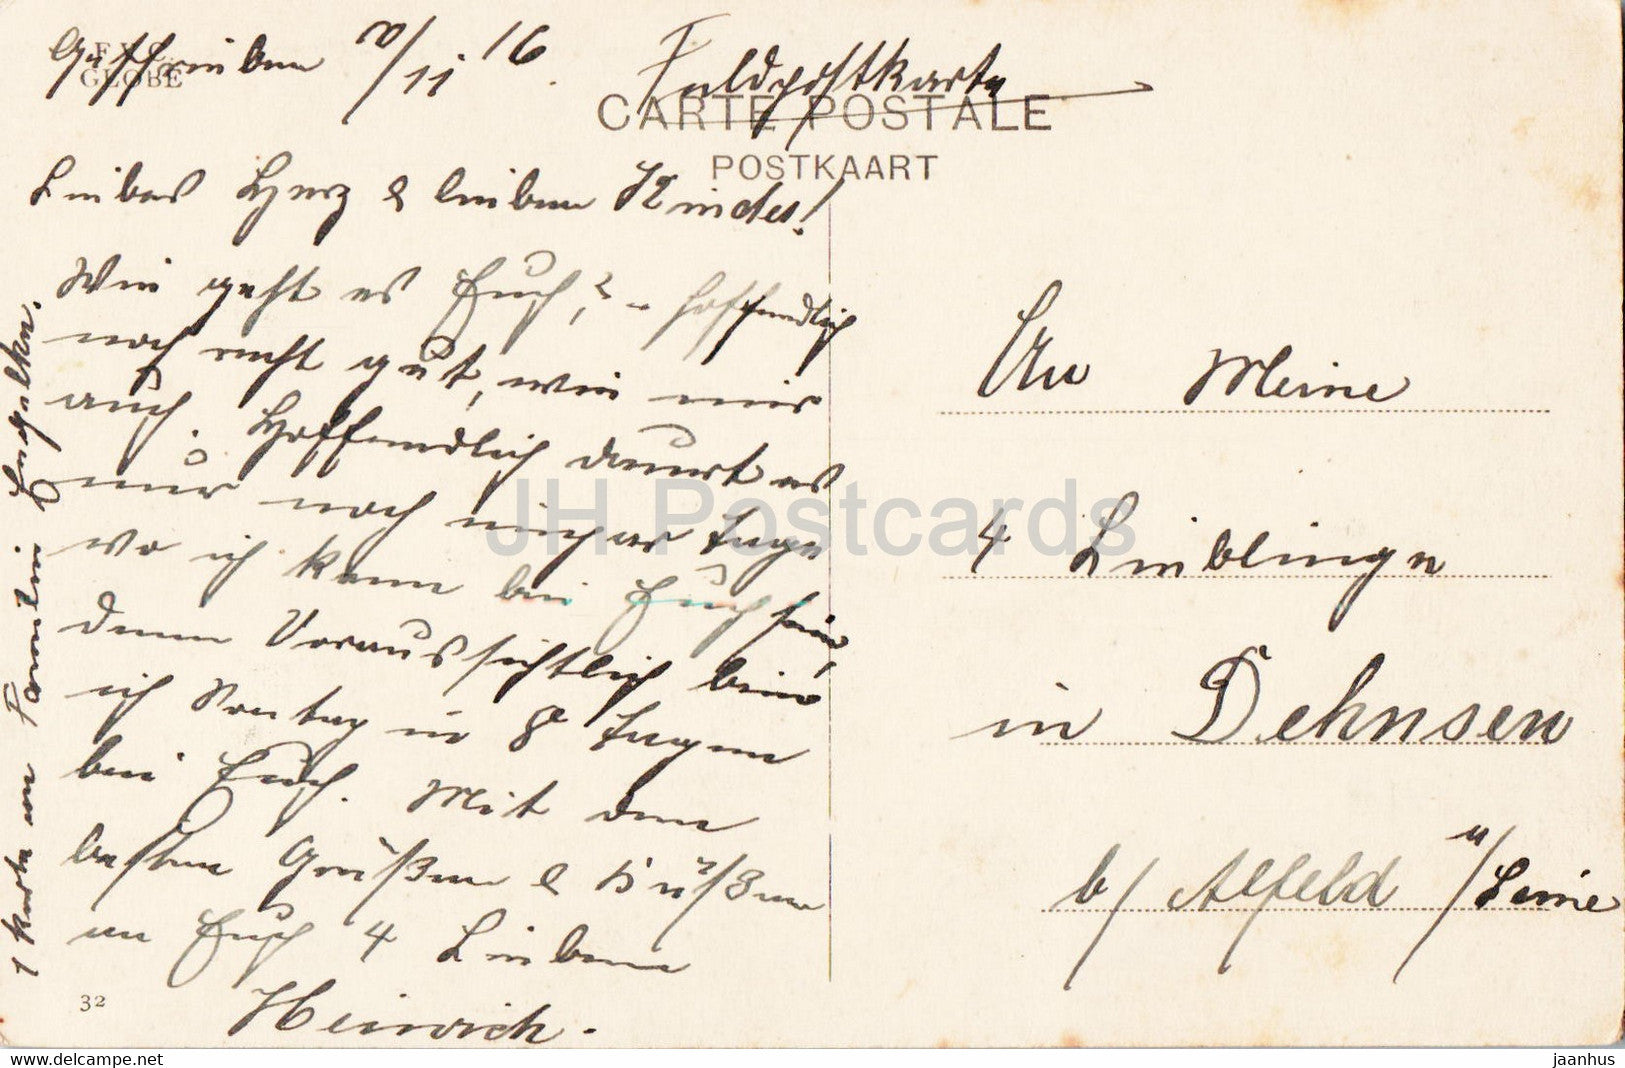 Geschrieben 20/11 16. Feldpostkarte
E.V.G.
GLOBE
CARTE POSTALE
POSTKAART
Liebes Herz & lieben Kindes!
Wie geht es Euch,? - hoffendlich
noch recht gut, wie mir
auch. Hoffendlich dauert es
nur noch einpar Tage
wo ich kann bei Euch sein,
denn Voraussichtlich bin
ich Sontag in 8 Tagen
bei Euch. Mit den
besten Grüßen & Küßen
an Euch 4 Lieben
Heinrich.
1 Karte von erhalten.
An Meine
4 Lieblinge
in Dehnsen
b/ Alfeld a/ Leine
32
JH Postcards
Delcampe.net
jaanhus